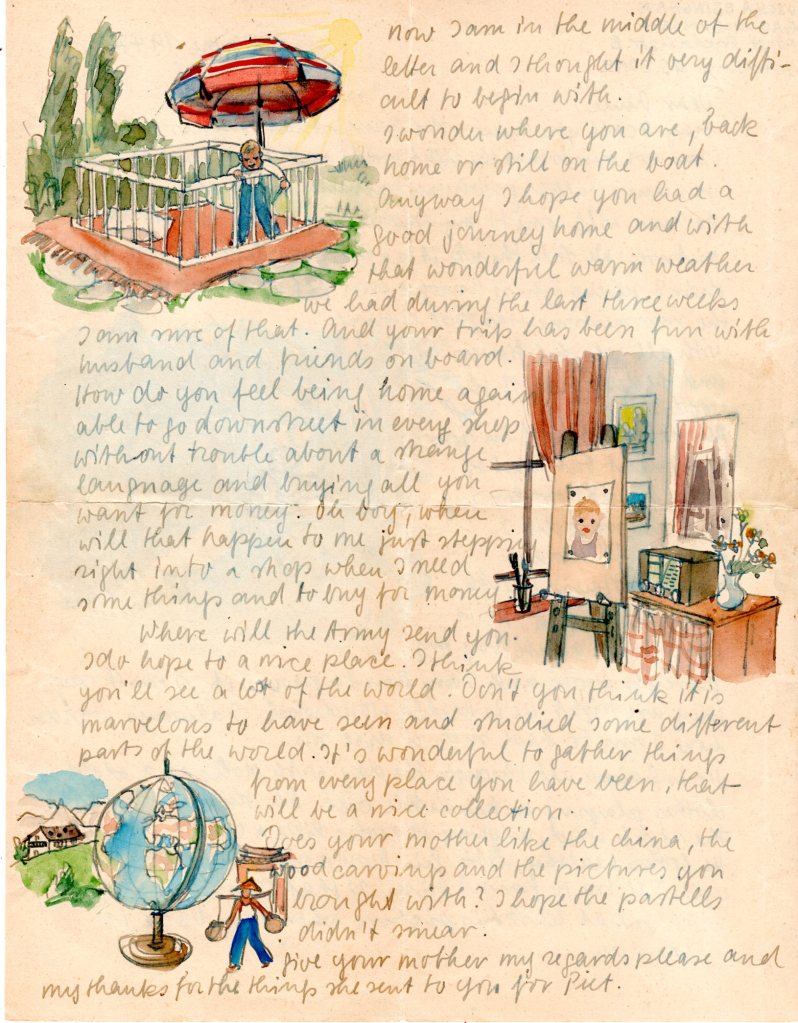 now I am in the middle of the
letter and I thought it very diffi-
cult to begin with.
I wonder where you are, back
home or still on the boat.
Anyway I hope you had a
good journey home and with
that wonderful warm weather
we had during the last three weeks
I am sure of that. And your trip has been fun with
husband and friends on board.
How do you feel being home again
able to go downstreet in every shop
without trouble about a strange
language and buying all you
want for money. Oh boy, when
will that happen to me just stepping
right into a shop when I need
some things and to buy for money.
Where will the Army send you.
I do hope to a nice place. I think
you'll see a lot of the world. Don't you think it is
marvelous to have seen and studied some different
parts of the world. It's wonderful to gather things
from every place you have been, that
will be a nice collection.
Does your mother like the china, the
wood carvings and the pictures you
brought with? I hope the pastells
didn't smear.
give your mother my regards please and
my thanks for the things she sent to you for Piet.